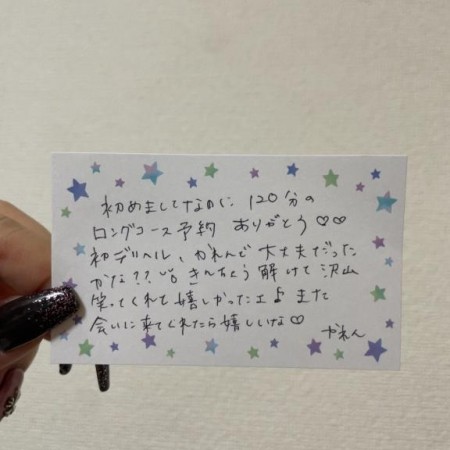 初めましてなのに 120分の
ロングコース予約 ありがとう♡♡
初デリヘル、かれんで大丈夫だった
かな?? きんちょう解けて沢山
笑ってくれて嬉しかったよ♪また
会いに来てくれたら嬉しいな♡
かれん